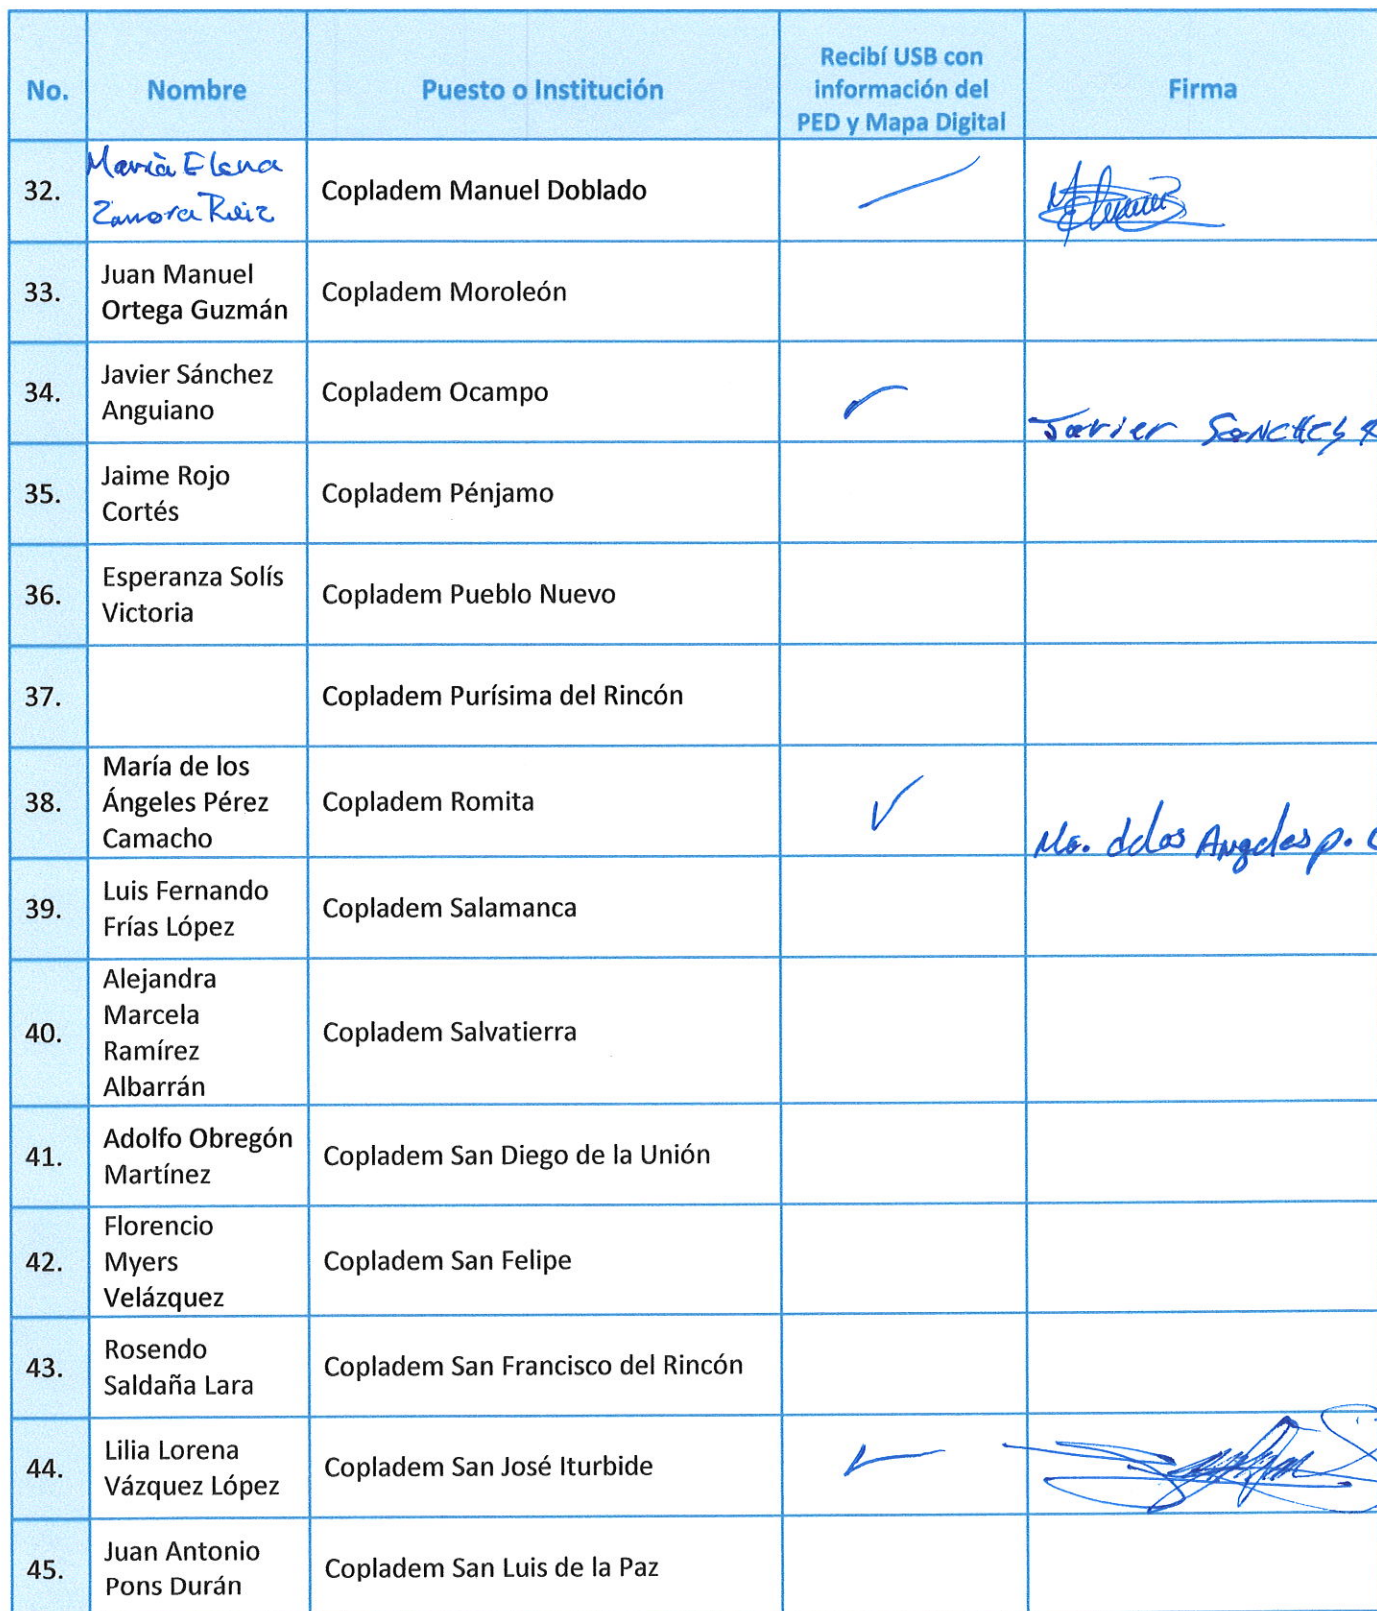 No.
Nombre
Puesto o Institución
Recibí USB con
información del
PED y Mapa Digital
Firma
32.
María Elena
Zamora Ruiz
Copladem Manuel Doblado
33.
Juan Manuel
Ortega Guzmán
Copladem Moroleón
34.
Javier Sánchez
Anguiano
Copladem Ocampo
Javier SANCHES
35.
Jaime Rojo
Cortés
Copladem Pénjamo
36.
Esperanza Solís
Victoria
Copladem Pueblo Nuevo
37.
Copladem Purísima del Rincón
38.
María de los
Ángeles Pérez
Camacho
Copladem Romita
Ma. delos Angeles p. C
39.
Luis Fernando
Frías López
Copladem Salamanca
40.
Alejandra
Marcela
Ramírez
Albarrán
Copladem Salvatierra
41.
Adolfo Obregón
Martínez
Copladem San Diego de la Unión
42.
Florencio
Myers
Velázquez
Copladem San Felipe
43.
Rosendo
Saldaña Lara
Copladem San Francisco del Rincón
44.
Lilia Lorena
Vázquez López
Copladem San José Iturbide
45.
Juan Antonio
Pons Durán
Copladem San Luis de la Paz